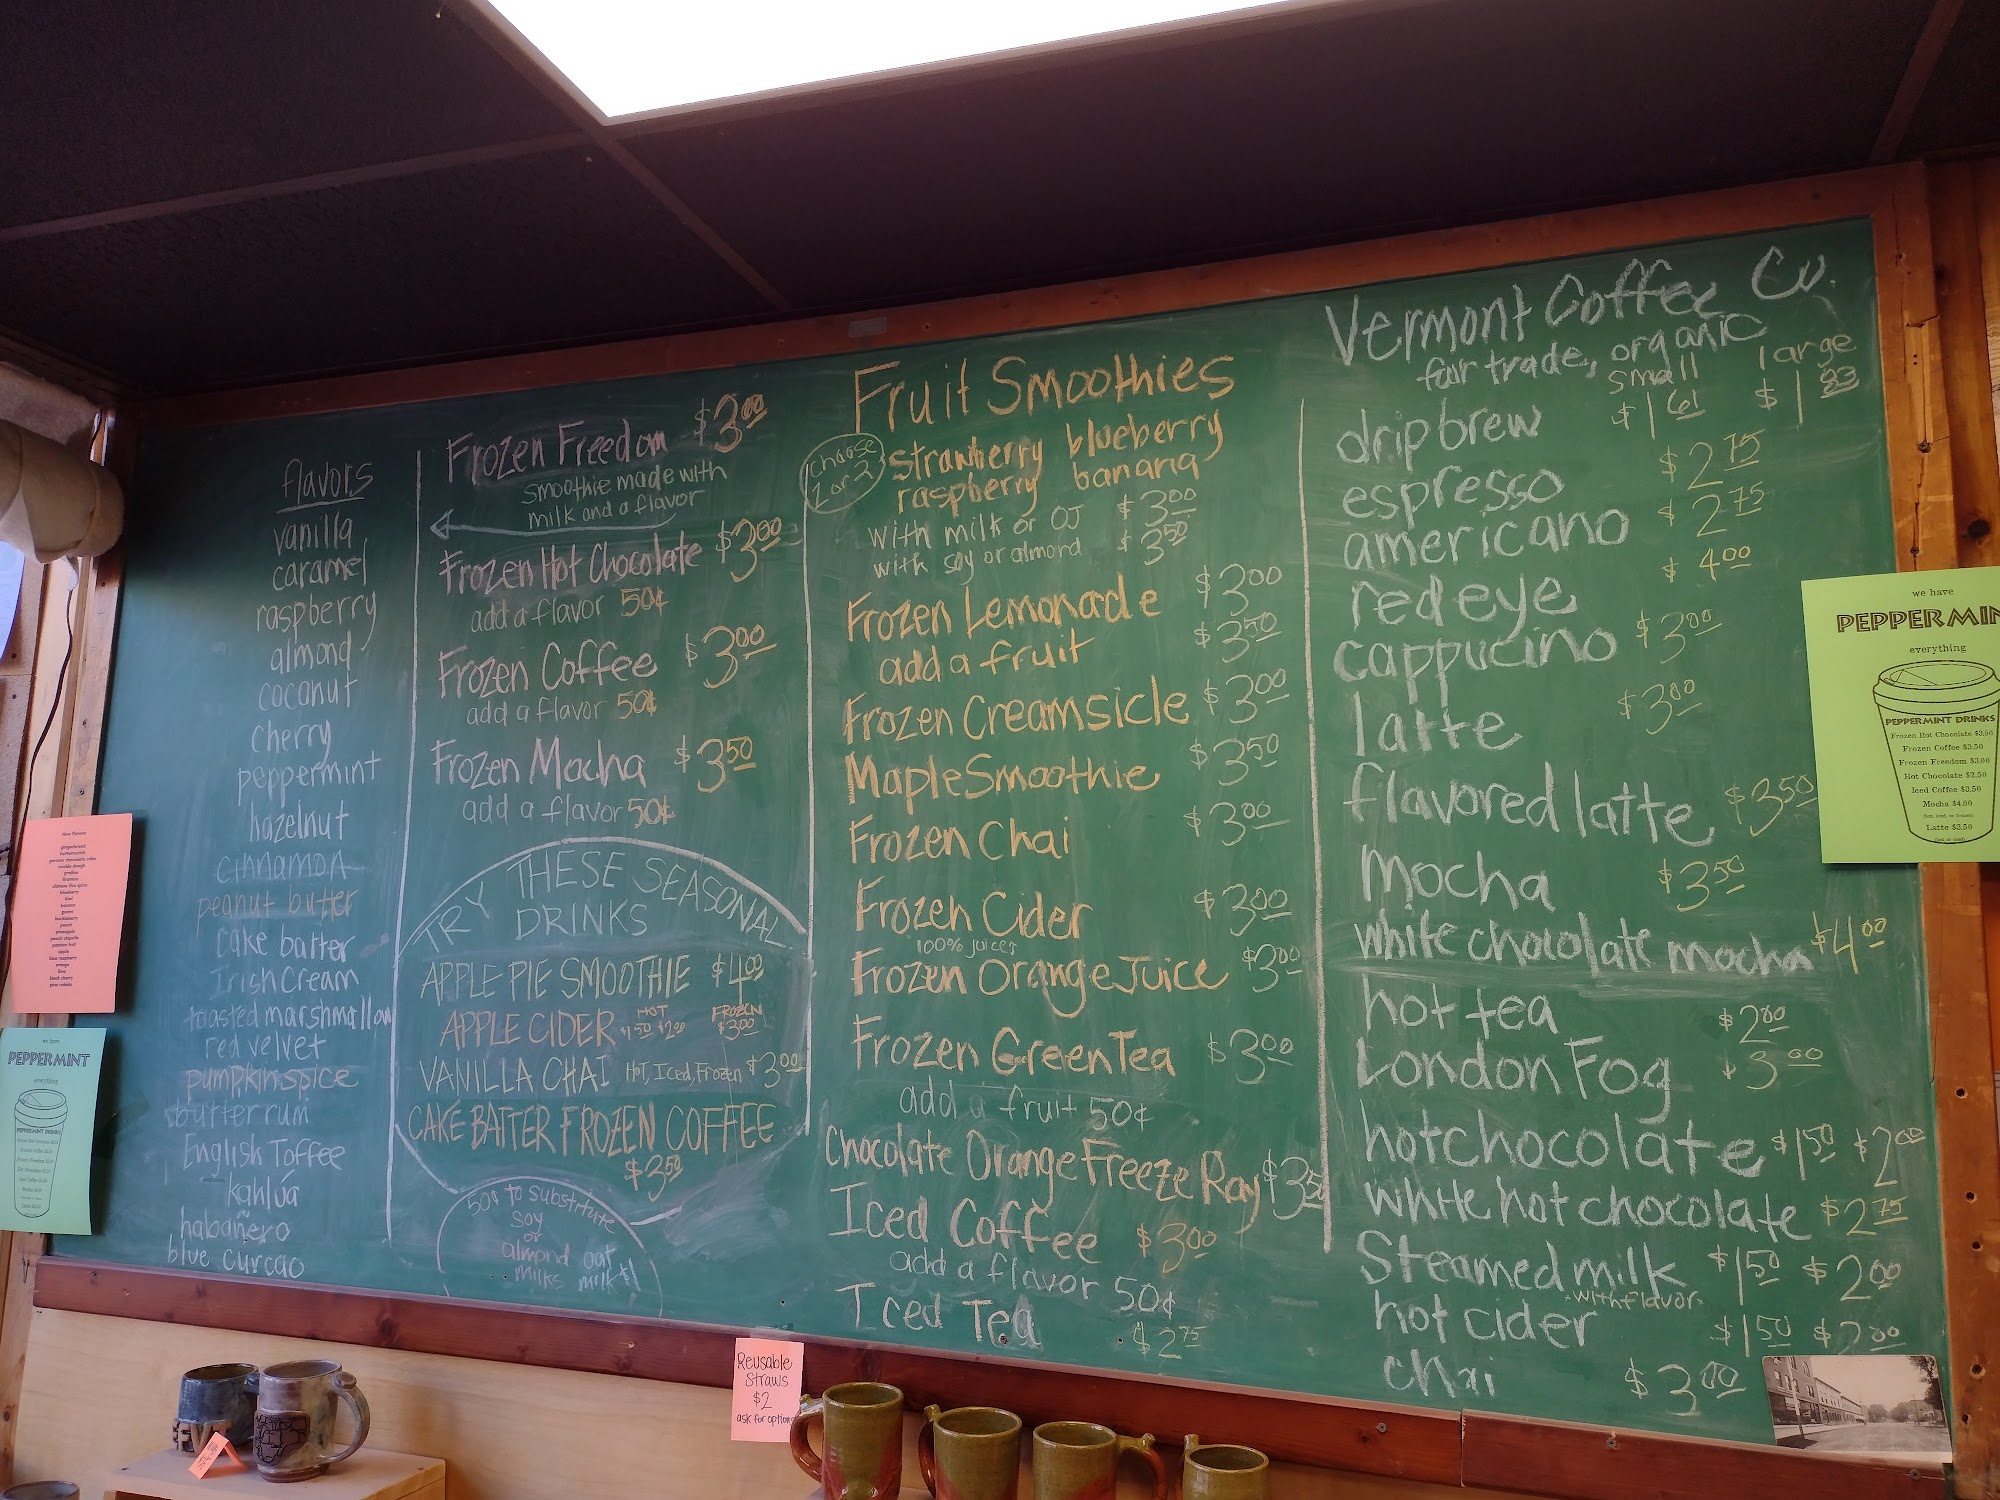 flavors
vanilla
caramel
raspberry
almond
coconut
cherry
peppermint
hazelnut
cinnamon
peanut butter
cake batter
Irish Cream
toasted marshmallow
red velvet
pumpkin spice
butter rum
English Toffee
kahlúa
habañero
blue curcao
Frozen Freedom $3.00
smoothie made with
milk and a flavor
Frozen Hot Chocolate $3.00
add a flavor 50¢
Frozen Coffee $3.00
add a flavor 50¢
Frozen Mocha $3.50
add a flavor 50¢
TRY THESE SEASONAL
DRINKS
APPLE PIE SMOOTHIE $4.00
APPLE CIDER HOT $1.50 $2.00 FROZEN $3.00
VANILLA CHAI HOT, Iced, Frozen $3.00
CAKE BATTER FROZEN COFFEE
$3.50
50¢ to substitute
soy
or
almond oat
milks milk!
Fruit Smoothies
choose
1 or 2
strawberry blueberry
raspberry banana
with milk or OJ $3.00
with soy or almond $3.50
Frozen Lemonade $3.00
add a fruit $3.50
Frozen Creamsicle $3.00
Maple Smoothie $3.50
Frozen Chai $3.00
Frozen Cider $3.00
100% juices
Frozen Orange Juice $3.00
Frozen Green Tea $3.00
add a fruit 50¢
Chocolate Orange Freeze Ray $3.50
Iced Coffee $3.00
add a flavor 50¢
Iced Tea $2.75
Vermont Coffee Co.
fair trade, organic
small large
drip brew $1.61 $1.83
espresso $2.75
americano $2.75
red eye $4.00
cappucino $3.00
latte $3.00
flavored latte $3.50
mocha $3.50
white chocolate mocha $4.00
hot tea $2.00
London Fog $3.00
hot chocolate $1.50 $2.00
white hot chocolate $2.75
Steamed milk $1.50 $2.00
with flavor
hot cider $1.50 $2.00
chai $3.00
we have
PEPPERMIN
everything
PEPPERMINT DRINKS
Frozen Hot Chocolate $3.50
Frozen Coffee $3.50
Frozen Freedom $3.00
Hot Chocolate $2.50
Iced Coffee $3.50
Mocha $4.00
(hot, iced, or frozen)
Latte $3.50
we have
PEPPERMINT
everything
PEPPERMINT DRINKS
Reusable
straws
$2
ask for options